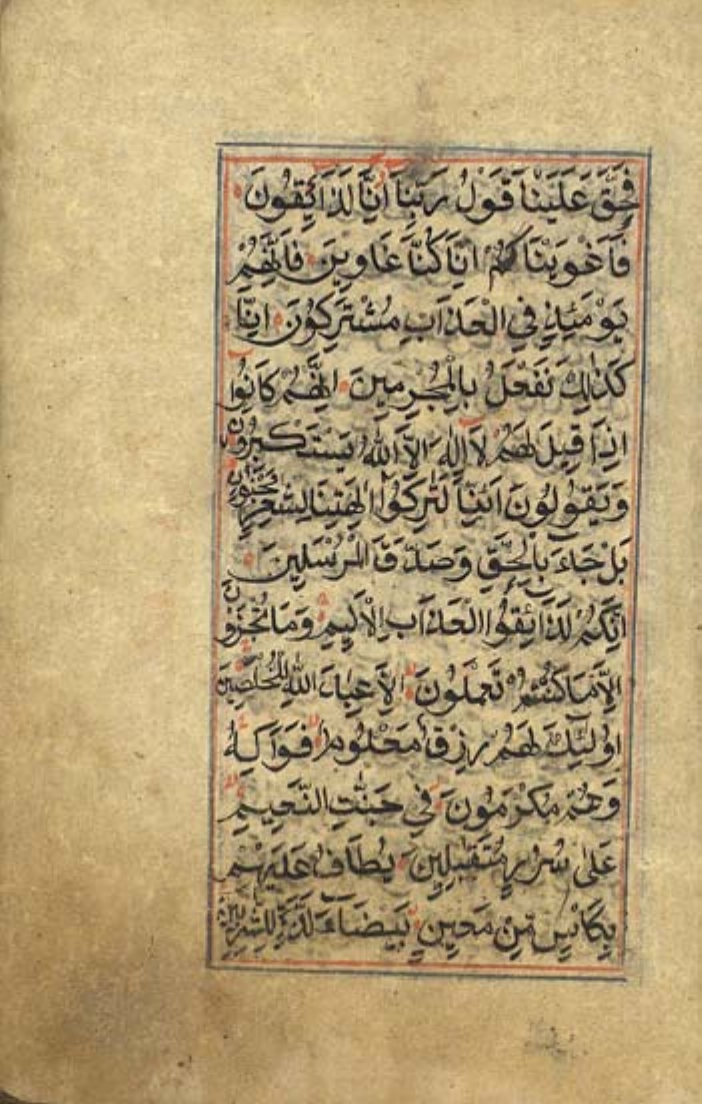 فَحَقَّ عَلَيْنَا قَوْلُ رَبِّنَا اِنَّا لَذَائِقُونَ
فَاَغْوَيْنَاكُمْ اِنَّا كُنَّا غَاوِينَ فَاِنَّهُمْ
يَوْمَئِذٍ فِي الْعَذَابِ مُشْتَرِكُونَ اِنَّا
كَذٰلِكَ نَفْعَلُ بِالْمُجْرِمِينَ اِنَّهُمْ كَانُوا
اِذَا قِيلَ لَهُمْ لَا اِلٰهَ اِلَّا اللّٰهُ يَسْتَكْبِرُونَ
وَيَقُولُونَ اَئِنَّا لَتَارِكُوا اٰلِهَتِنَا لِشَاعِرٍ مَجْنُونٍ
بَلْ جَاءَ بِالْحَقِّ وَصَدَّقَ الْمُرْسَلِينَ
اِنَّكُمْ لَذَائِقُوا الْعَذَابِ الْاَلِيمِ وَمَا تُجْزَوْنَ
اِلَّا مَا كُنْتُمْ تَعْمَلُونَ اِلَّا عِبَادَ اللّٰهِ الْمُخْلَصِينَ
اُولٰئِكَ لَهُمْ رِزْقٌ مَعْلُومٌ فَوَاكِهُ
وَهُمْ مُكْرَمُونَ فِي جَنّٰتِ النَّعِيمِ
عَلٰى سُرُرٍ مُتَقٰبِلِينَ يُطَافُ عَلَيْهِمْ
بِكَاْسٍ مِنْ مَعِينٍ بَيْضَاءَ لَذَّةٍ لِلشّٰرِبِينَ